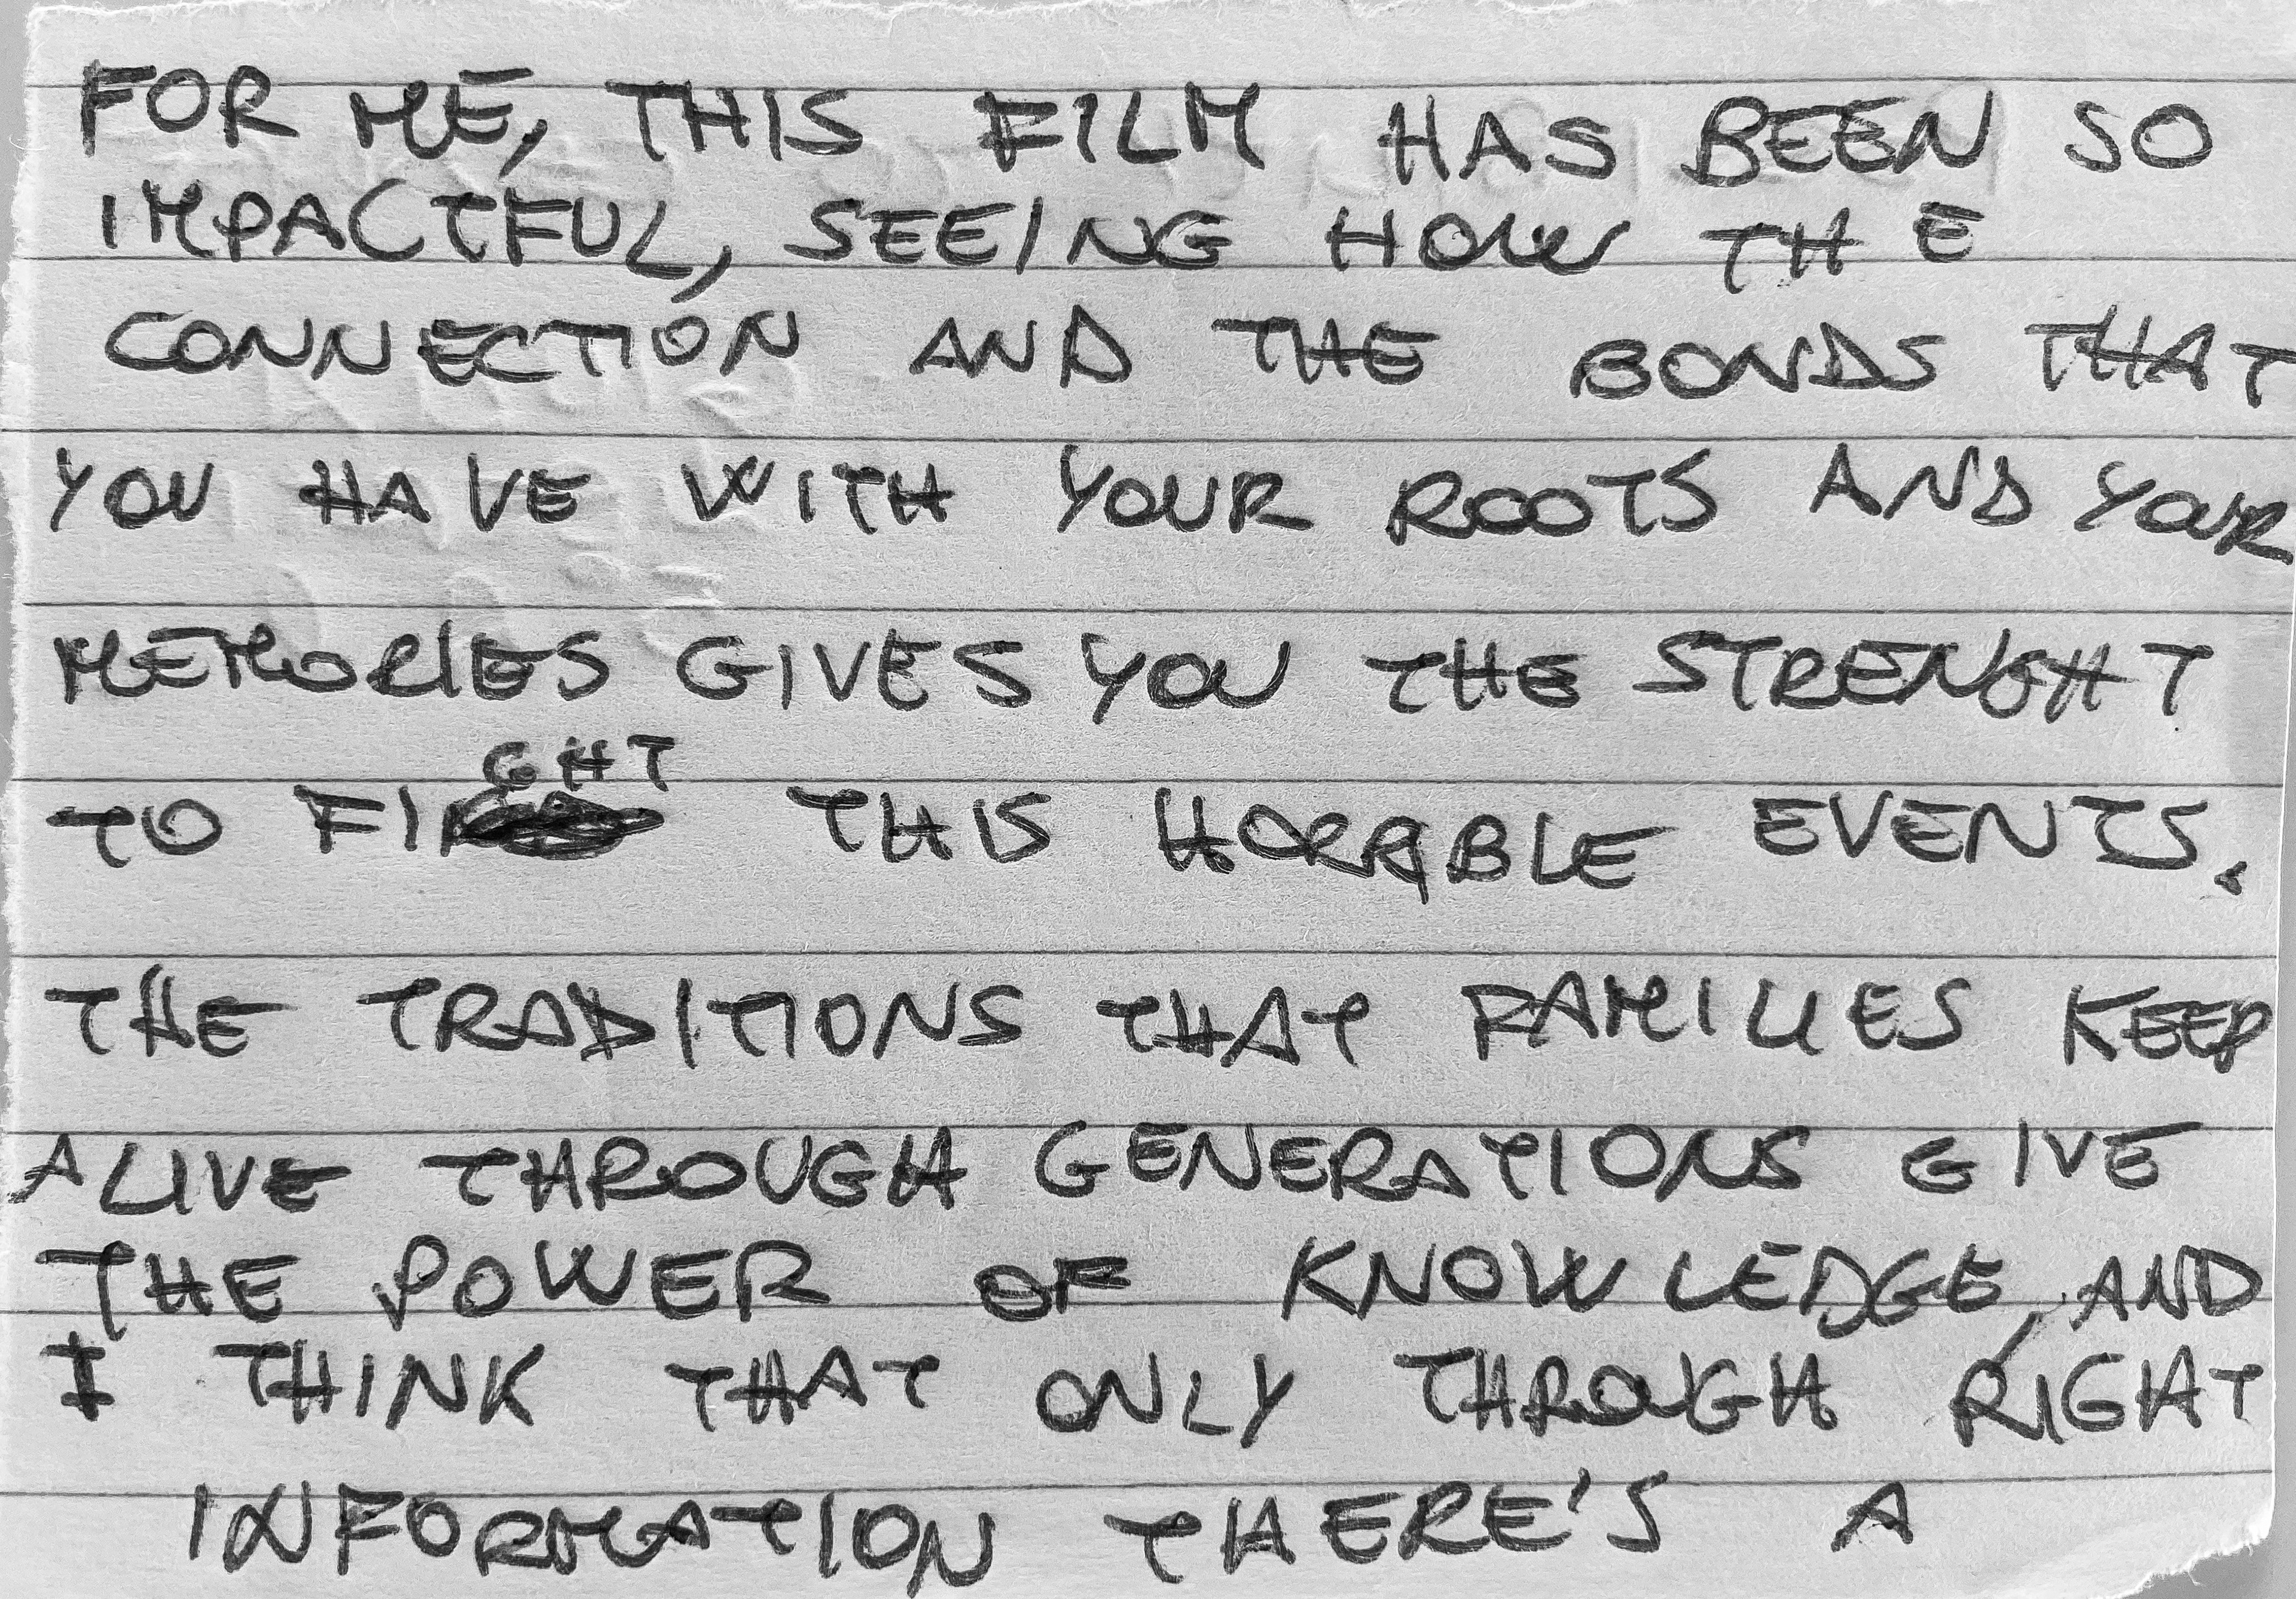 FOR ME, THIS FILM HAS BEEN SO
IMPACTFUL, SEEING HOW THE
CONNECTION AND THE BONDS THAT
YOU HAVE WITH YOUR ROOTS AND YOUR
MEMORIES GIVES YOU THE STRENGHT
TO FIGHT THIS HORRIBLE EVENTS.
THE TRADITIONS THAT FAMILIES KEEP
ALIVE THROUGH GENERATIONS GIVE
THE POWER OF KNOWLEDGE, AND
I THINK THAT ONLY THROUGH RIGHT
INFORMATION THERE'S A